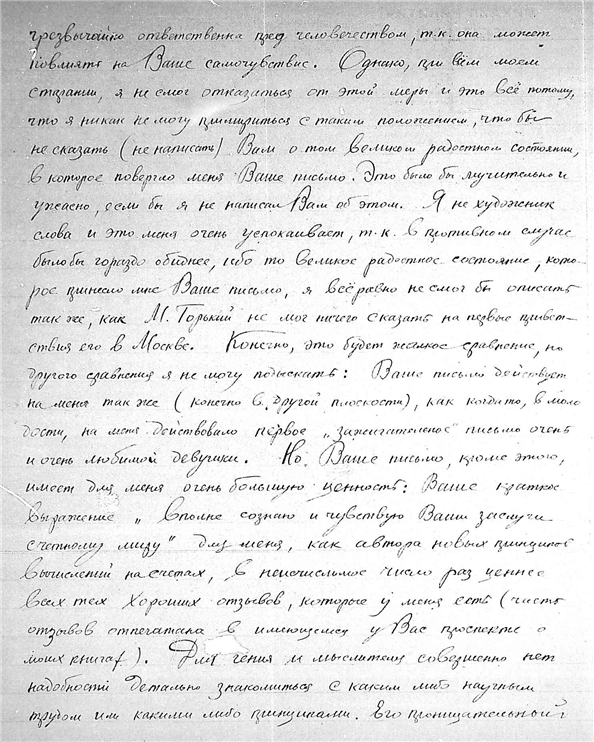 чрезвычайно ответственна пред человечеством, т.к. она может
повлиять на Ваше самочувствие. Однако, при всём моем
старании, я не смог отказаться от этой меры и это всё потому,
что я никак не могу примириться с таким положением, что бы
не сказать (не написать) Вам о том великом радостном состоянии,
в которое повергло меня Ваше письмо. Это было бы мучительно и
ужасно, если бы я не написал Вам об этом. Я не художник
слова и это меня очень успокаивает, т.к. в противном случае
было бы гораздо обиднее, ибо то великое радостное состояние, кото-
рое принесло мне Ваше письмо, я всё равно не смог бы описать
так же, как М. Горький не мог ничего сказать на первые привет-
ствия его в Москве. Конечно, это будет жалкое сравнение, но
другого сравнения я не могу подыскать: Ваше письмо действует
на меня так же (конечно в другой плоскости), как когда то, в моло
дости, на меня действовало первое „зажигательное" письмо очень
и очень любимой девушки. Но Ваше письмо, кроме этого,
имеет для меня очень большую ценность: Ваше краткое
выражение „вполне сознаю и чувствую Ваши заслуги
счетному миру" для меня, как автора новых принципов
вычислений на счетах, в неисчислимое число раз ценнее
всех тех хороших отзывов, которые у меня есть (часть
отзывов отпечатана в имеющемся у Вас проспекте о
моих книгах). Для гения и мыслителя совершенно нет
надобности детально знакомиться с каким либо научным
трудом или какими либо принципами. Его проницательный